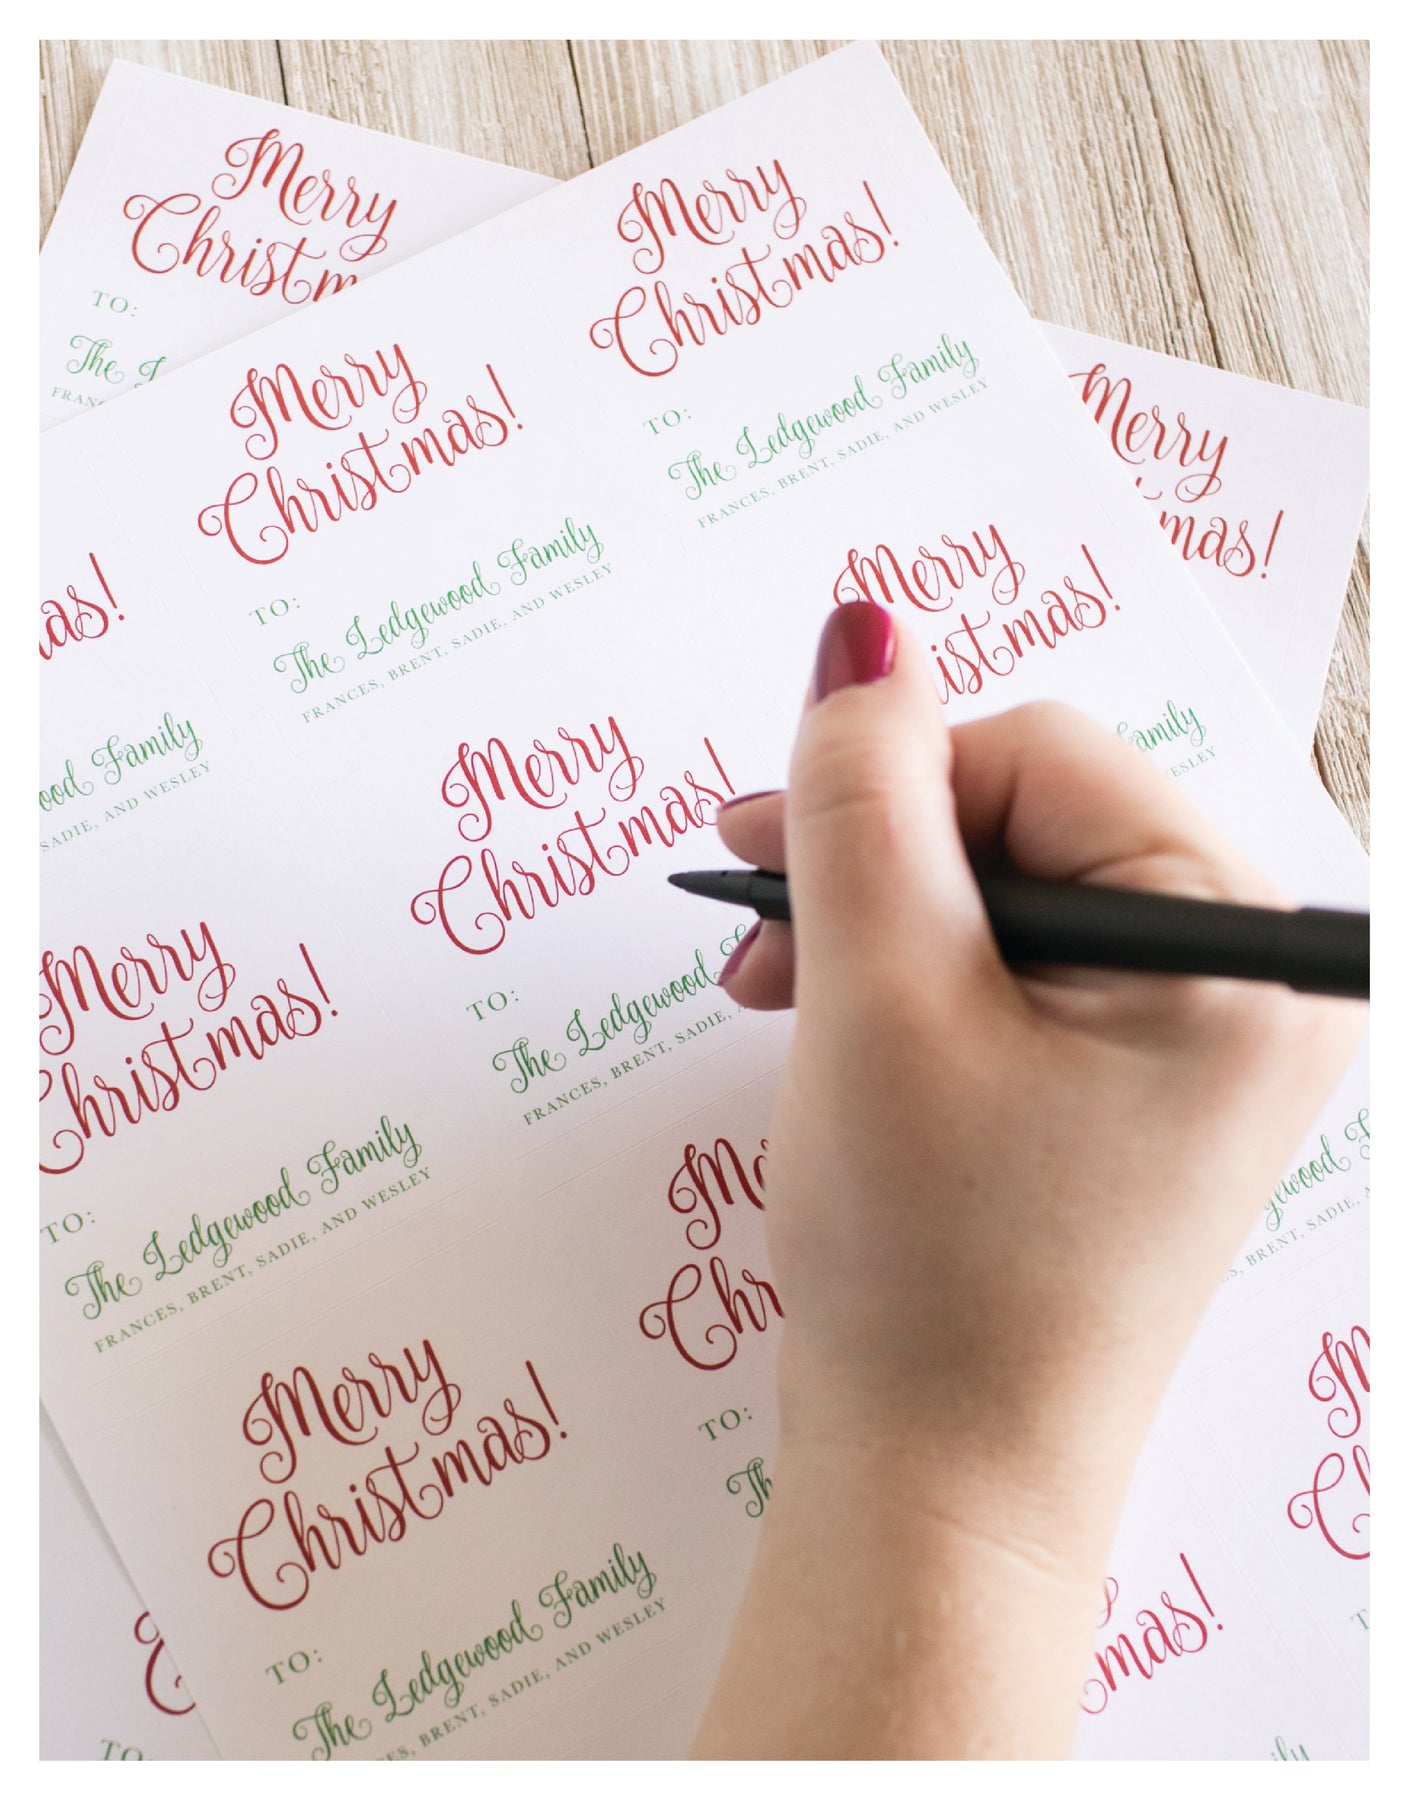 Merry
Christm
TO:
The
FRAN
Merry
Christmas!
TO:
The Ledgewood Family
FRANCES, BRENT, SADIE, AND WESLEY
Merry
Christmas!
TO:
The Ledgewood Family
FRANCES, BRENT, SADIE, AND WESLEY
Merry
mas!
as!
ood Family
SADIE, AND WESLEY
Merry
Christmas!
TO:
The Ledgewood
FRANCES, BRENT, SADIE,
Merry
istmas!
amily
ESLEY
Merry
Christmas!
TO:
The Ledgewood Family
FRANCES, BRENT, SADIE, AND WESLEY
Me
Chr
TO:
Th
gewood
BRENT, SADIE,
Merry
Christmas!
TO:
The Ledgewood Family
ES, BRENT, SADIE, AND WESLEY
M
C
mas!
ily
TO